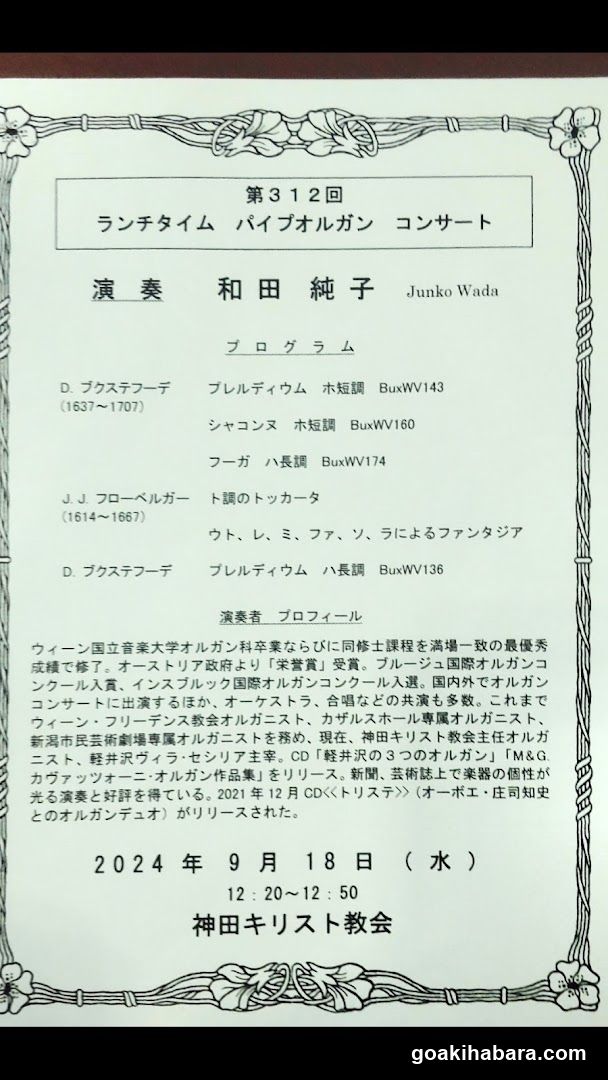 第312回
ランチタイム パイプオルガン コンサート
演 奏 和 田 純 子 Junko Wada
プ ロ グ ラ ム
D. ブクステフーデ プレルディウム ホ短調 BuxWV143
(1637〜1707)
シャコンヌ ホ短調 BuxWV160
フーガ ハ長調 BuxWV174
J. J. フローベルガー ト調のトッカータ
(1614〜1667)
ウト、レ、ミ、ファ、ソ、ラによるファンタジア
D. ブクステフーデ プレルディウム ハ長調 BuxWV136
演奏者 プロフィール
ウィーン国立音楽大学オルガン科卒業ならびに同修士課程を満場一致の最優秀
成績で修了。オーストリア政府より「栄誉賞」受賞。ブルージュ国際オルガンコ
ンクール入賞、インスブルック国際オルガンコンクール入選。国内外でオルガン
コンサートに出演するほか、オーケストラ、合唱などの共演も多数。これまで
ウィーン・フリーデンス教会オルガニスト、カザルスホール専属オルガニスト、
新潟市民芸術劇場専属オルガニストを務め、現在、神田キリスト教会主任オルガ
ニスト、軽井沢ヴィラ・セシリア主宰。CD「軽井沢の3つのオルガン」「M&G.
カヴァッツォーニ・オルガン作品集」をリリース。新聞、芸術誌上で楽器の個性が
光る演奏と好評を得ている。2021年12月CD<<トリステ>>(オーボエ・庄司知史
とのオルガンデュオ)がリリースされた。
2024年9月18日(水)
12:20〜12:50
神田キリスト教会
goakihabara.com